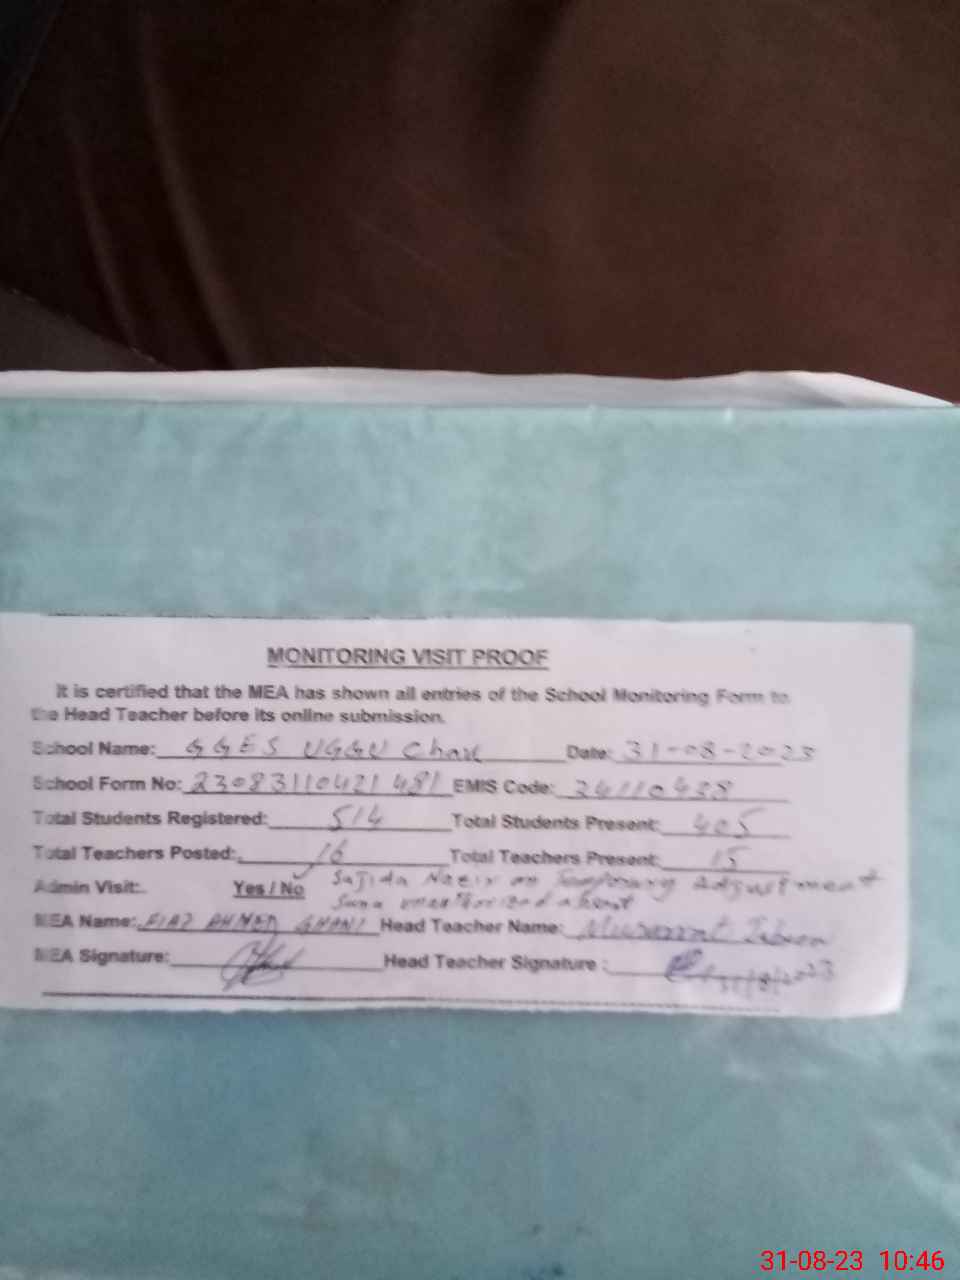 MONITORING VISIT PROOF
It is certified that the MEA has shown all entries of the School Monitoring Form to
the Head Teacher before its online submission.
School Name: GGES UGGU Chak Date: 31-08-2023
School Form No: 23083110421481 EMIS Code: 34110438
Total Students Registered: 514 Total Students Present: 405
Total Teachers Posted: 16 Total Teachers Present: 15
Admin Visit: Yes / No Sajida on Temporary Adjustment
absent
MEA Name: AHMED GHANI Head Teacher Name: Musarrat
MEA Signature: Head Teacher Signature : 31/8/2023
31-08-23 10:46